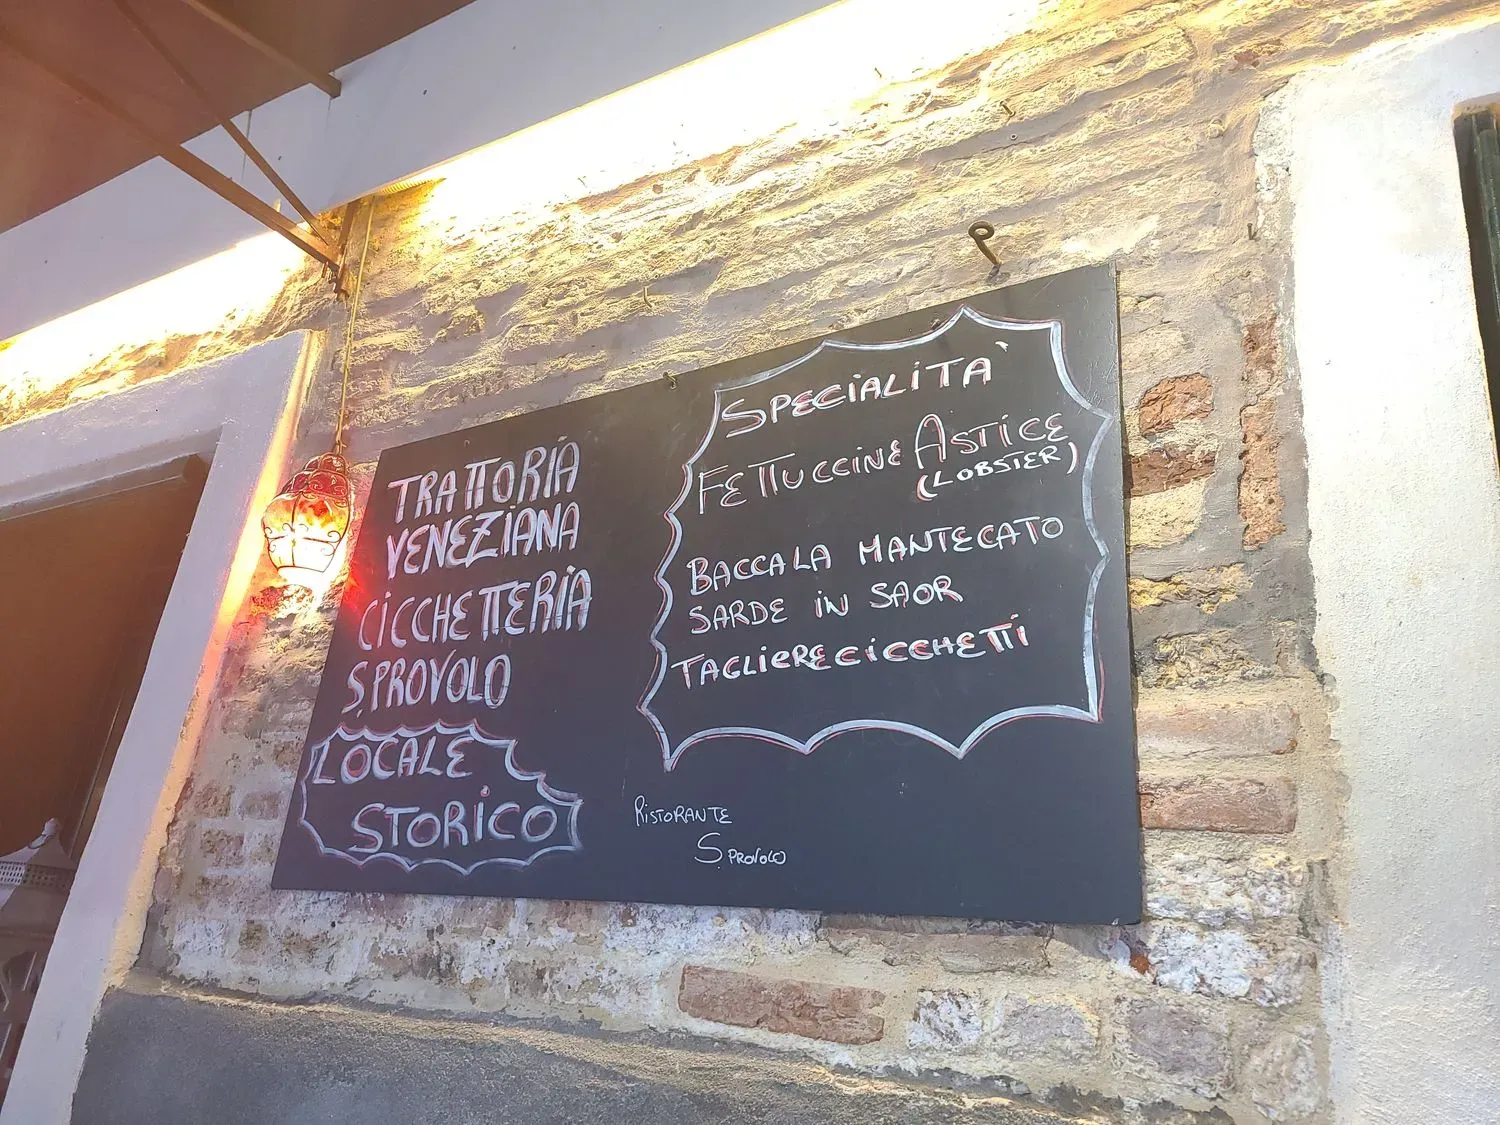 TRATTORIA
VENEZIANA
CICCHETTERIA
S.PROVOLO
LOCALE
STORICO
SPECIALITA`
FETTUCCINE ASTICE
(LOBSTER)
BACCALA MANTECATO
SARDE IN SAOR
TAGLIERE CICCHETTI
RISTORANTE
S.PROVOLO